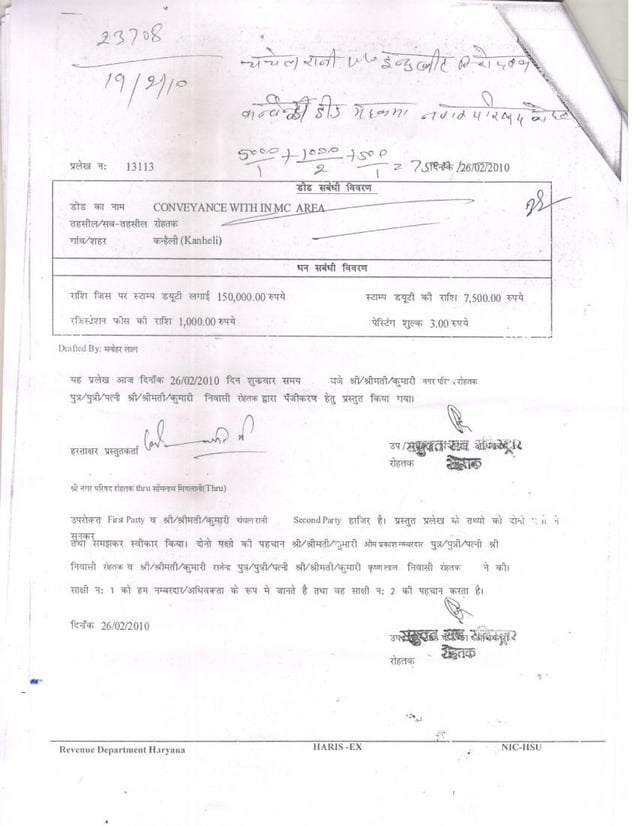 23708
19/2/10
चंचल रानी
5000/1 + 1000/2 + 500/1 = 75
प्रलेख न: 13113
दिनाँक /26/02/2010
डीड सबंधी विवरण
डीड का नाम CONVEYANCE WITH IN MC AREA
तहसील/सब-तहसील रोहतक
गांव/शहर कन्हेली (Kanheli)
धन सबंधी विवरण
राशि जिस पर स्टाम्प डयूटी लगाई 150,000.00 रुपये स्टाम्प डयूटी की राशि 7,500.00 रुपये
रजिस्ट्रेशन फीस की राशि 1,000.00 रुपये पेस्टिंग शुल्क 3.00 रुपये
Drafted By: मनोहर लाल
यह प्रलेख आज दिनाँक 26/02/2010 दिन शुकवार समय बजे श्री/श्रीमती/कुमारी नगर परि रोहतक
पुत्र/पुत्री/पत्नी श्री/श्रीमती/कुमारी निवासी रोहतक द्वारा पँजीकरण हेतु प्रस्तुत किया गया।
हस्ताक्षर प्रस्तुतकर्ता
उप/
रोहतक
श्री नगर परिषद रोहतक thru सोमनाथ मिगलानी(Thru)
उपरोक्त First Party व श्री/श्रीमती/कुमारी चंचल रानी Second Party हाजिर है। प्रस्तुत प्रलेख के तथ्यो को दोनो ने
सुनकर
तथा समझकर स्वीकार किया। दोनो पक्षो की पहचान श्री/श्रीमती/कुमारी ओम प्रकाश नम्बरदार पुत्र/पुत्री/पत्नी श्री
निवासी रोहतक व श्री/श्रीमती/कुमारी राजेन्द्र पुत्र/पुत्री/पत्नी श्री/श्रीमती/कुमारी कृष्ण लाल निवासी रोहतक ने की।
साक्षी न: 1 को हम नम्बरदार/अधिवक्ता के रूप मे जानते है तथा वह साक्षी न: 2 की पहचान करता है।
दिनाँक 26/02/2010
उप
रोहतक
Revenue Department Haryana HARIS -EX NIC-HSU